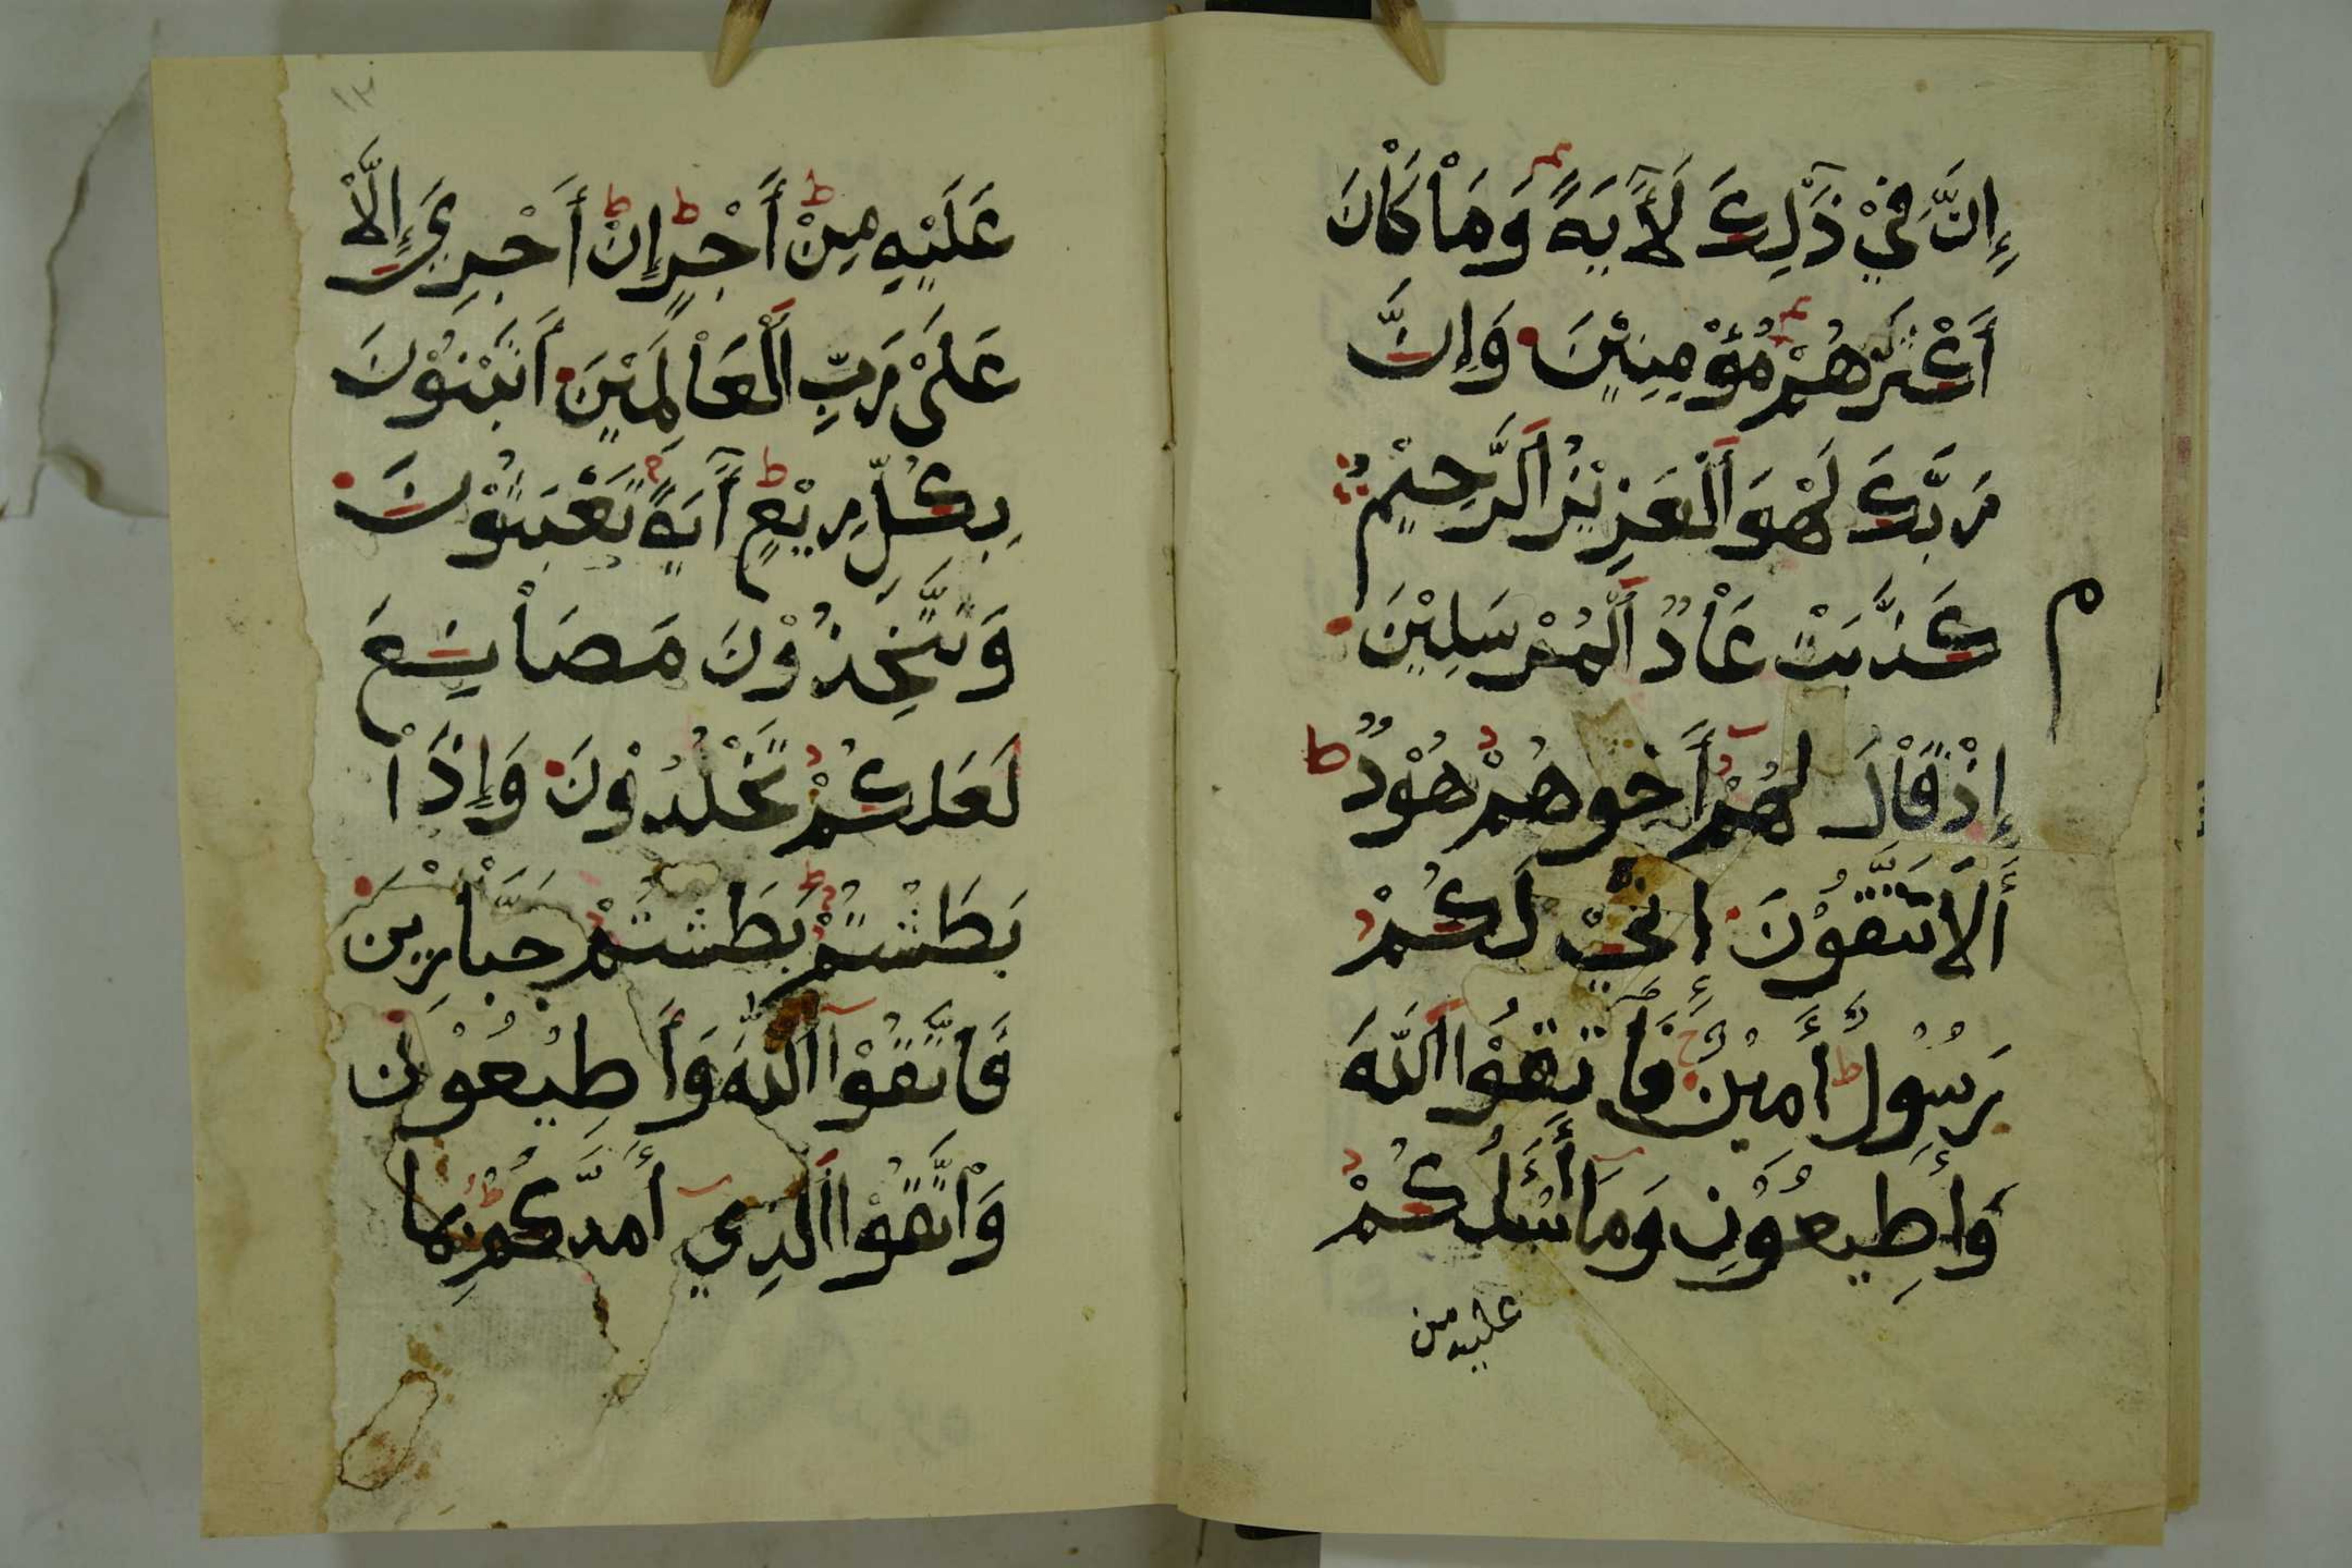 إِنَّ فِيْ ذَٰلِكَ لَأٓيَةً وَمَاْ كَاْنَ
أَكْثَرُهُمْ مُؤْمِنِيْنَ وَإِنَّ
رَبَّكَ لَهْوَ اَلْعَزِيْزُ اَلرَّحِيْمُ
كَذَّبَتْ عَاْدٌ اَلْمُرْسَلِيْنَ
م
إِذْ قَاْلَ لَهُمْ أَخُوهُمْ هُوْدٌ
أَلَا تَتَّقُوْنَ إِنِّيْ لَكُمْ
رَسُوْلٌ أَمِيْنٌ فَاتَّقُوْا اَللَّهَ
وَأَطِيعُوْنِ وَمَا أَسْأَلُكُمْ
عليه من
١٢
عَلَيْهِ مِنْ أَجْرٍ إِنْ أَجْرِيَ إِلَّاْ
عَلَىْ رَبِّ اَلْعَاْلَمِيْنَ أَتَبْنُوْنَ
بِكُلِّ رِيْعٍ أٓيَةً تَعْبَثُوْنَ
وَتَتَّخِذُوْنَ مَصَاْنِعَ
لَعَلَّكُمْ تَخْلُدُوْنَ وَإِذَاْ
بَطَشْتُمْ بَطَشْتُمْ جَبَّاْرِيْنَ
فَاتَّقُوْا اَللَّهَ وَأَطِيْعُوْنِ
وَاْتَّقُوْا اَلَّذِي أَمَدَّكُمْ بِمَا